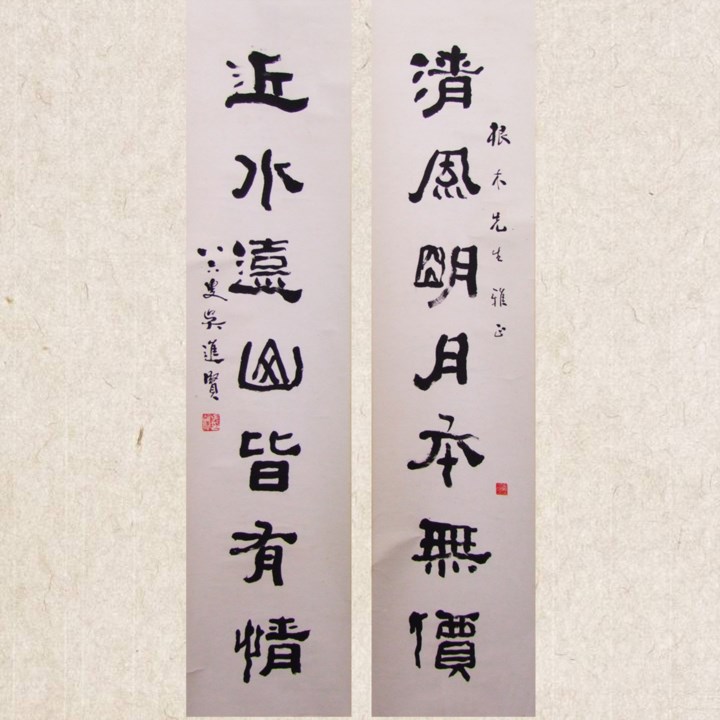 清風明月本無價
根木先生雅正
近水遠山皆有情
八六叟吳進賢